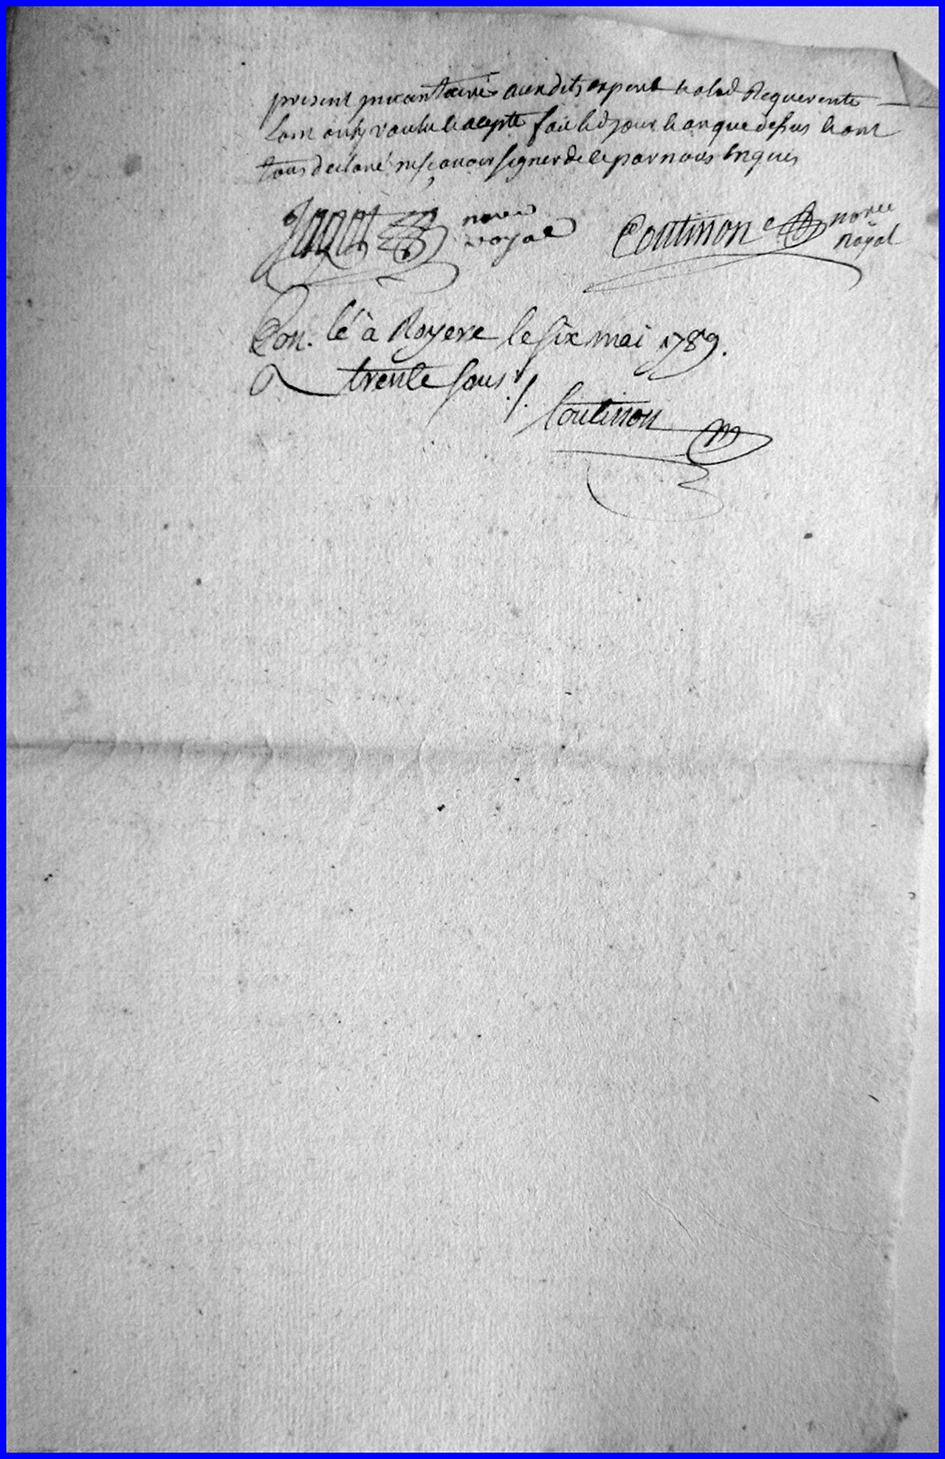 present inventaire auxdits experts et a lad Requerente
lont ainsy voulu et acepté fait led jour et an que dessus et ont
tous declaré ne scavoir signer de ce par nous enquis
Jagot no.re royal
Coutinon no.re Royal
Con. lé à Royere le six mai 1789.
R trente sous
Coutinon